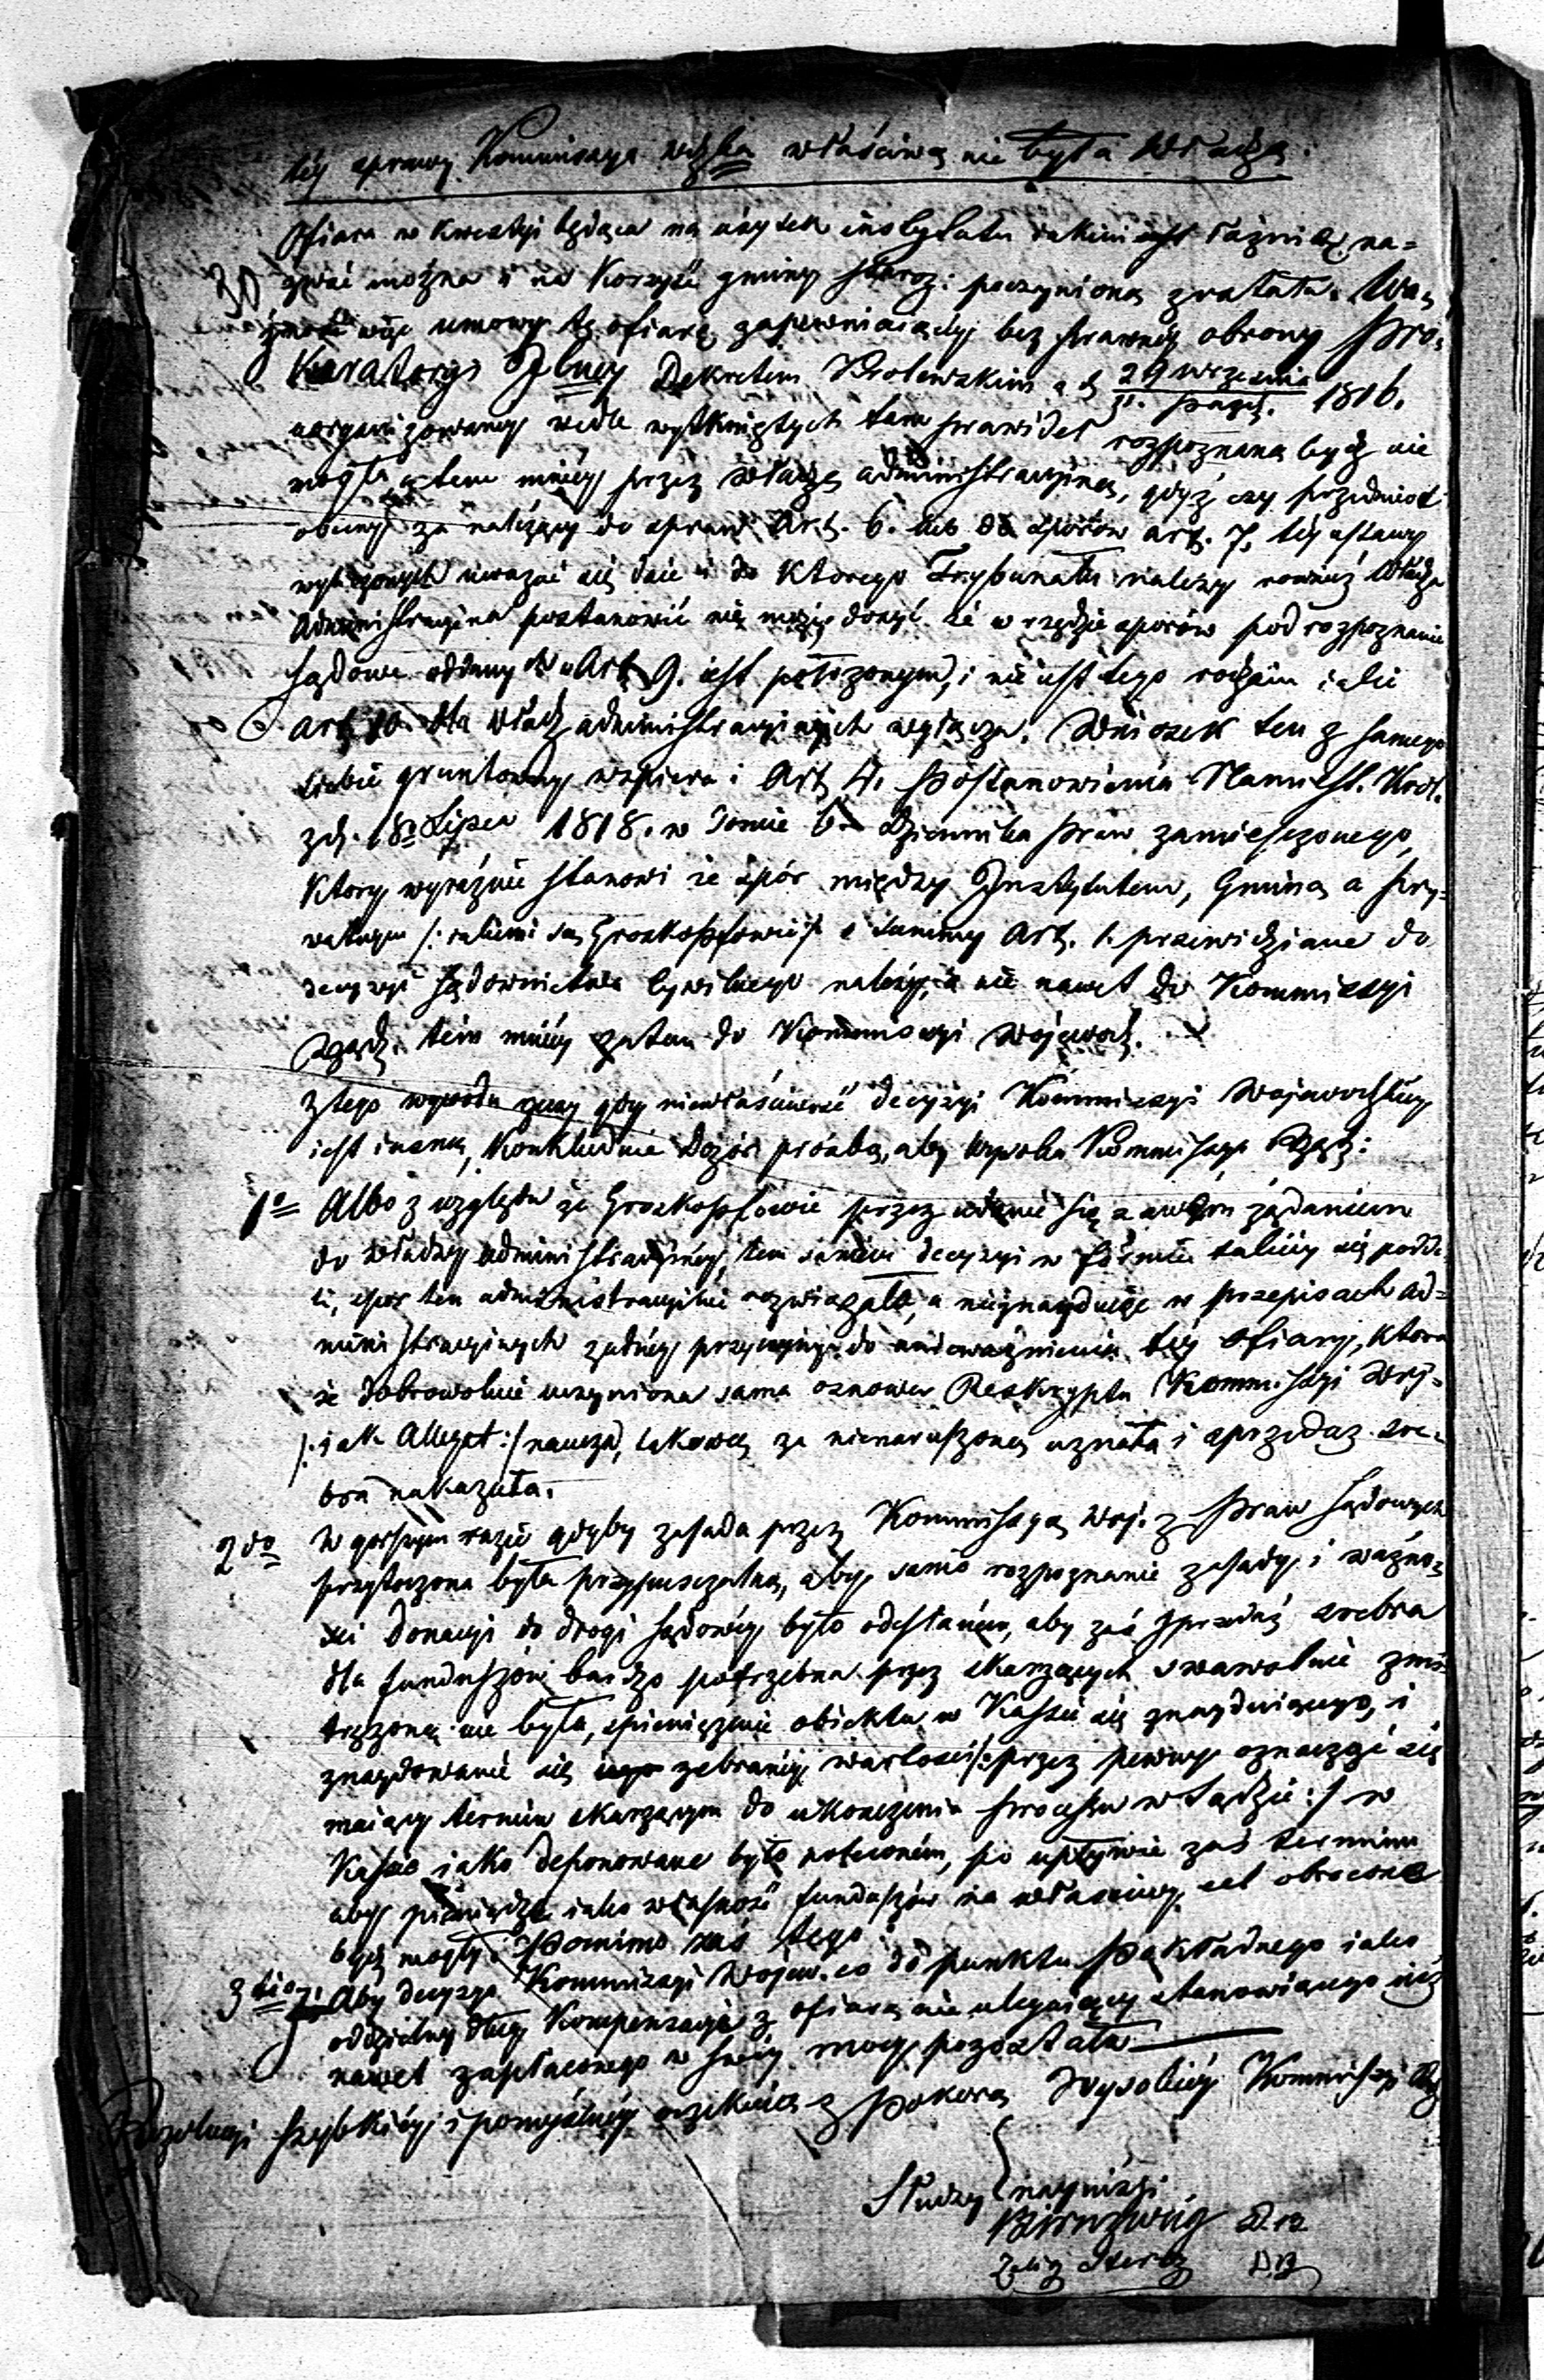 téy sprawy Kommissya wdzka właściwą nie była Władzą.
Ofiara w kwestyi będąca na użytek instytutu iakim iest łaźnią na=
30 zwać można i na korzyść gminy staroz: poczynioną została. Wa=
żność więc umowy tę ofiarę zapewniaiącéy bez prawnéy obrony Pro=
kuratoryi Jlney Dekretem Królewskim z d. 29 września 1816.
11. Paźdz.
uorganizowanéy wedle wytkniętych tam prawideł rozpoznaną bydź nie
mogła, a tem mniéy przez Władzę administracyiną, gdyż czy przedmiot
obecny za należący do spraw Art. 6. lub do sporów art. 7. téy ustawy
wyłączonych uważać się daie i do którego Trybunału należy również Władza
Administracyina postanowić nie może, dosyć że w rzędzie sporów pod rozpoznanie
sądowe oddanych Art. 9. iest położonym, i nie iest tego rodzaiu iakie
art. 10. dla władz administracyinych wyłącza. Wniosek ten z samego
siebie gruntowny wspiera i Art. 4. Postanowienia Namiest. Król.
z d. 18 Lipca 1818. w Tomie 6. Dziennika Praw zamieszczonego,
który wyraźnie stanowi że spór między Instytutem, Gminą a pry=
watnym /: iakiemi są Groskopfowie :/ o summy Art. 1. przewidziane do
decyzyi sądownictwa cywilnego należy, a nie nawet do Kommissyi
Rządz. tém mniéy zatem do Kommissyi Wojewódz.
Z tego wywodu gdy niewłaściwość decyzyi Kommissyi Wojewódzkiéy
iest iasną, konkluduie Dozór prośbą, aby Wysoka Kommissya Rządz:
1o Albo z względu że Groskopfowie przez udanie się z swém żądaniem
do władzy administracyinéy, tem samém decyzyi w formie takiéy się podda=
li, spor ten administracyinie rozwiązała, a nieznayduiąc w przepisach ad=
ministracyinych żadnéy przyczyny do unieważnienia téy ofiary, która
że dobrowolnie uczyniona sama osnowa Reskryptu Kommissyi Woj=
/: iak Allegat :/ naucza, takową za nienaruszoną uznała i sprzedaż sre=
bra nakazała.
2do W gorszym razie gdyby zasada przez Kommissyą Woj. z Praw sądowych
przytoczona była przypuszczalną, aby samo rozpoznanie zasady i ważno=
ści donacyi do drogi sądowéy było odesłaném, aby zaś sprzedaż srebra
dla funduszów bardzo potrzebna przez skarżących swawolnie zmi=
trężoną nie była, spieniężenie obiektu w Kassie się znayduiącego, i
znaydowanie się zebranéy wartości /: przez pewny oznaczyć się
maiący termin skarżącym do ukończenia processu w Sądzie :/ w
Kassie iako deponowane było poleconém, po upływie zaś terminu
aby pieniądze iako własność funduszów na właściwy cel obrócone
bydź mogły. Pomimo zaś tego
3tio Aby decyzya Kommissyi Wojew. co do punktu Pokładnego iako
oddzielny dług kompensacyi z ofiarą nie ulegaiący stanowiącego iuż
nawet zapłaconego w swéy mocy pozostała.
Rezolucyi szybkiéy i pomyślnéy oczekuią z Pokorą Wysokiéy Kommissyi Rz
Słudzy nayniżsi
Birnzweig D. B.
Zelig Sterz D. B.